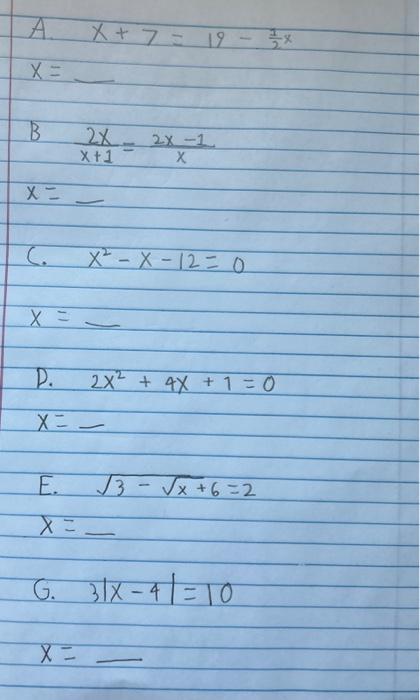 A. x + 7 = 19 - 1/2 x
x = __
B 2x/x+1 = 2x-1/x
x = __
C. x² - x - 12 = 0
x = __
D. 2x² + 4x + 1 = 0
x = __
E. √3 - √x + 6 = 2
x = __
G. 3|x - 4| = 10
x = __